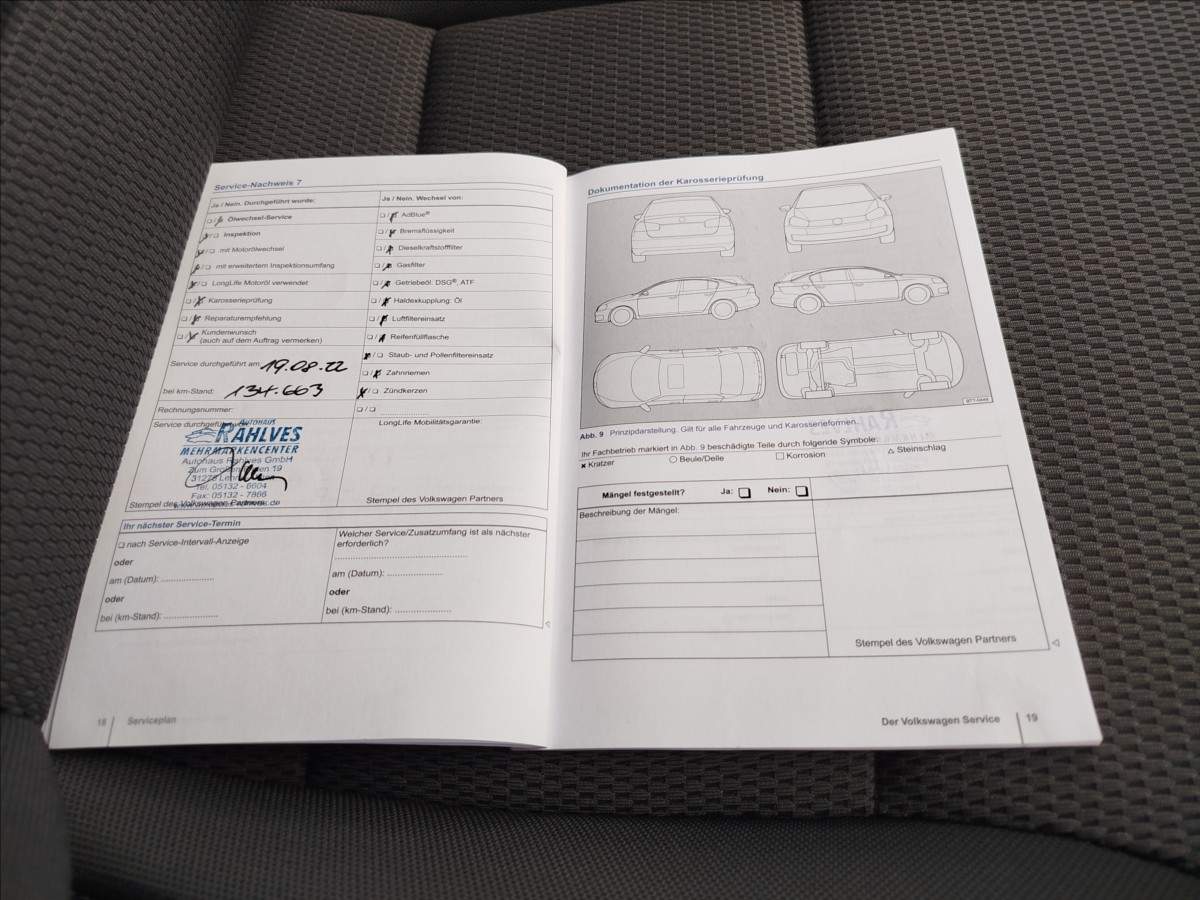 Service-Nachweis 7
Ja / Nein. Durchgeführt wurde:
Ölwechsel-Service
Inspektion
mit Motorölwechsel
mit erweitertem Inspektionsumfang
LongLife Motoröl verwendet
Karosserieprüfung
Reparaturempfehlung
Kundenwunsch
(auch auf dem Auftrag vermerken)
Service durchgeführt am 19.08.22
bei km-Stand: 134.663
Rechnungsnummer:
Ja / Nein. Wechsel von:
AdBlue®
Bremsflüssigkeit
Dieselkraftstofffilter
Gasfilter
Getriebeöl: DSG®, ATF
Haldexkupplung: Öl
Luftfiltereinsatz
Reifenfüllflasche
Staub- und Pollenfiltereinsatz
Zahnriemen
Zündkerzen
Service durchgeführt
AUTOHAUS
RAHLVES
MEHRMARKENCENTER
Autohaus Rahlves GmbH
19
Tel. 05132 - 6604
Fax: 05132 - 7866
Stempel des Volkswagen Partners
LongLife Mobilitätsgarantie:
Stempel des Volkswagen Partners
Ihr nächster Service-Termin
nach Service-Intervall-Anzeige
oder
am (Datum):
oder
bei (km-Stand):
Welcher Service/Zusatzumfang ist als nächster
erforderlich?
am (Datum):
oder
bei (km-Stand):
18 Serviceplan
Dokumentation der Karosserieprüfung
Abb. 9 Prinzipdarstellung. Gilt für alle Fahrzeuge und Karosserieformen.
Ihr Fachbetrieb markiert in Abb. 9 beschädigte Teile durch folgende Symbole:
Kratzer Beule/Delle Korrosion Steinschlag
Mängel festgestellt? Ja: Nein:
Beschreibung der Mängel:
Stempel des Volkswagen Partners
Der Volkswagen Service 19